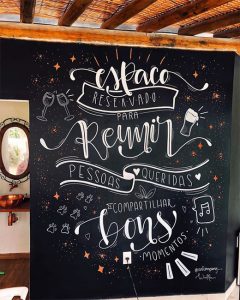 espaço
RESERVADO
PARA
Reunir
PESSOAS QUERIDAS
COMPARTILHAR
Bons
MOMENTOS